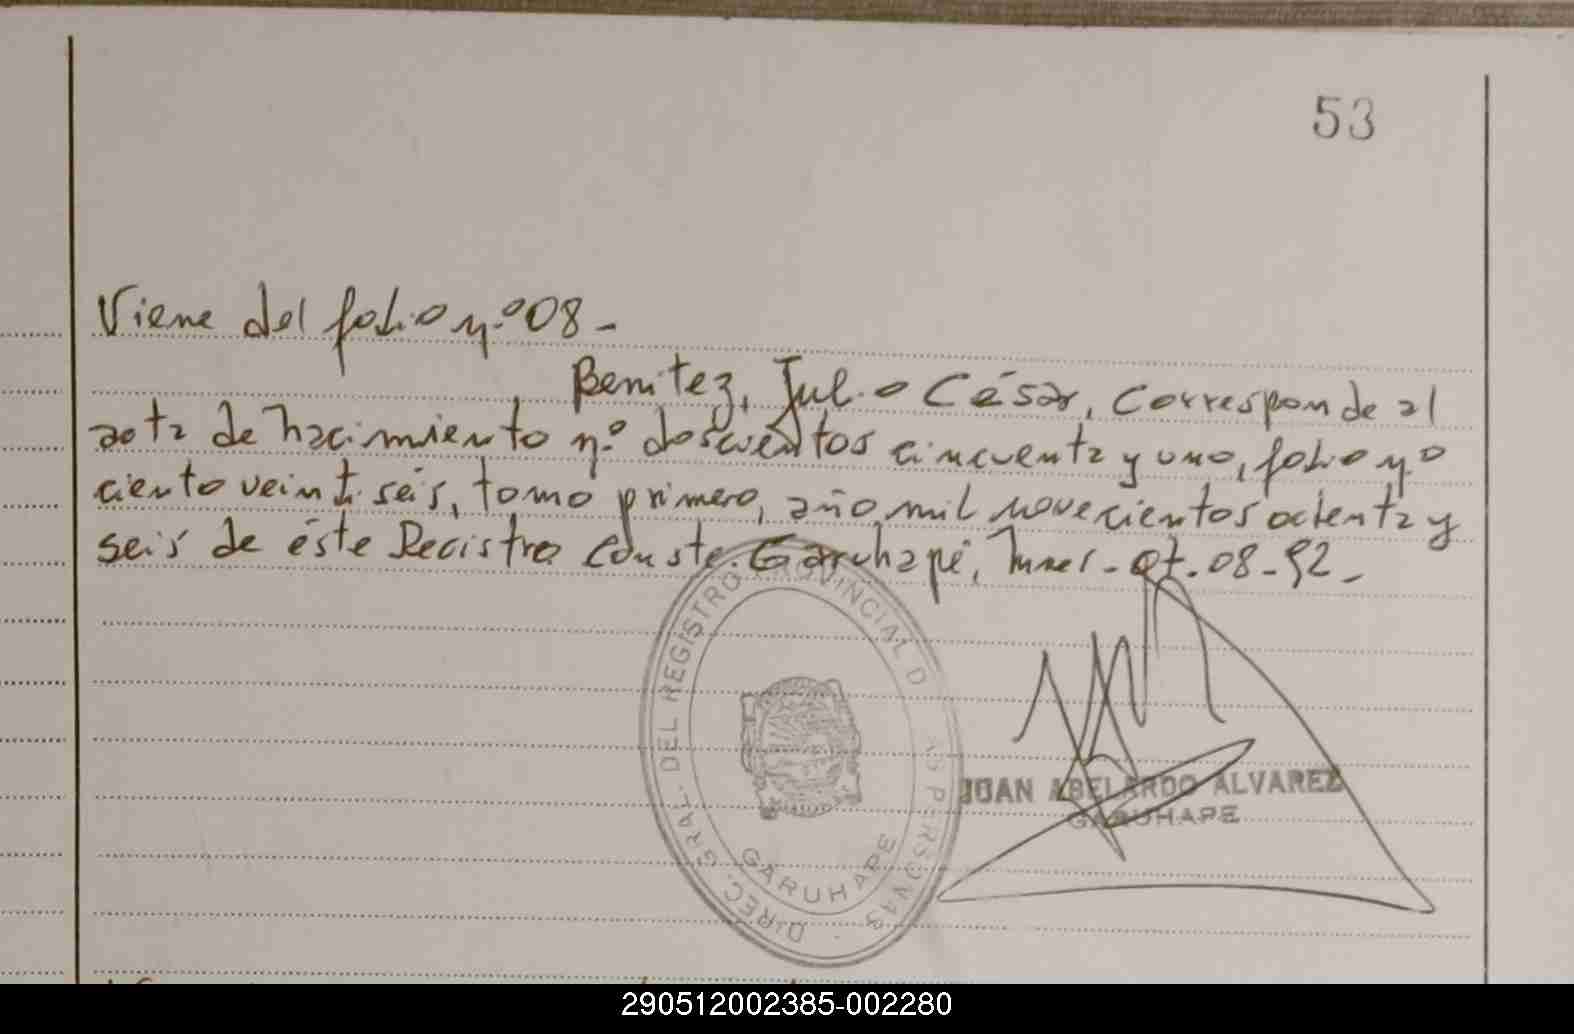 53
Viene del folio n.º 08 -
Benitez, Julio César, Corresponde al
acta de nacimiento n.º doscientos cincuenta y uno, folio nº
ciento veintiseis, tomo primero, año mil novecientos ochenta y
seis de éste Registro Conste. Garuhapé, Mnes - 07-08-92-
DIREC. GRAL. DEL REGISTRO PROVINCIAL D LAS PERSONAS
GARUHAPE
JUAN ABELARDO ALVAREZ
GARUHAPE
290512002385-002280